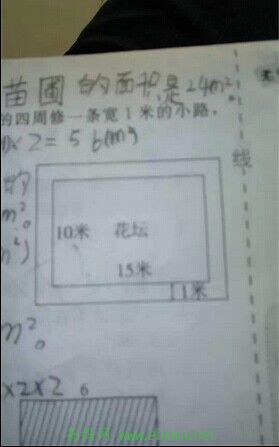 苗圃的面积是24m²。
的四周修一条宽1米的小路。
×2=56(m)
的
m²。
m²)
10米 花坛
15米
1米
m²。
×2×2 6
线